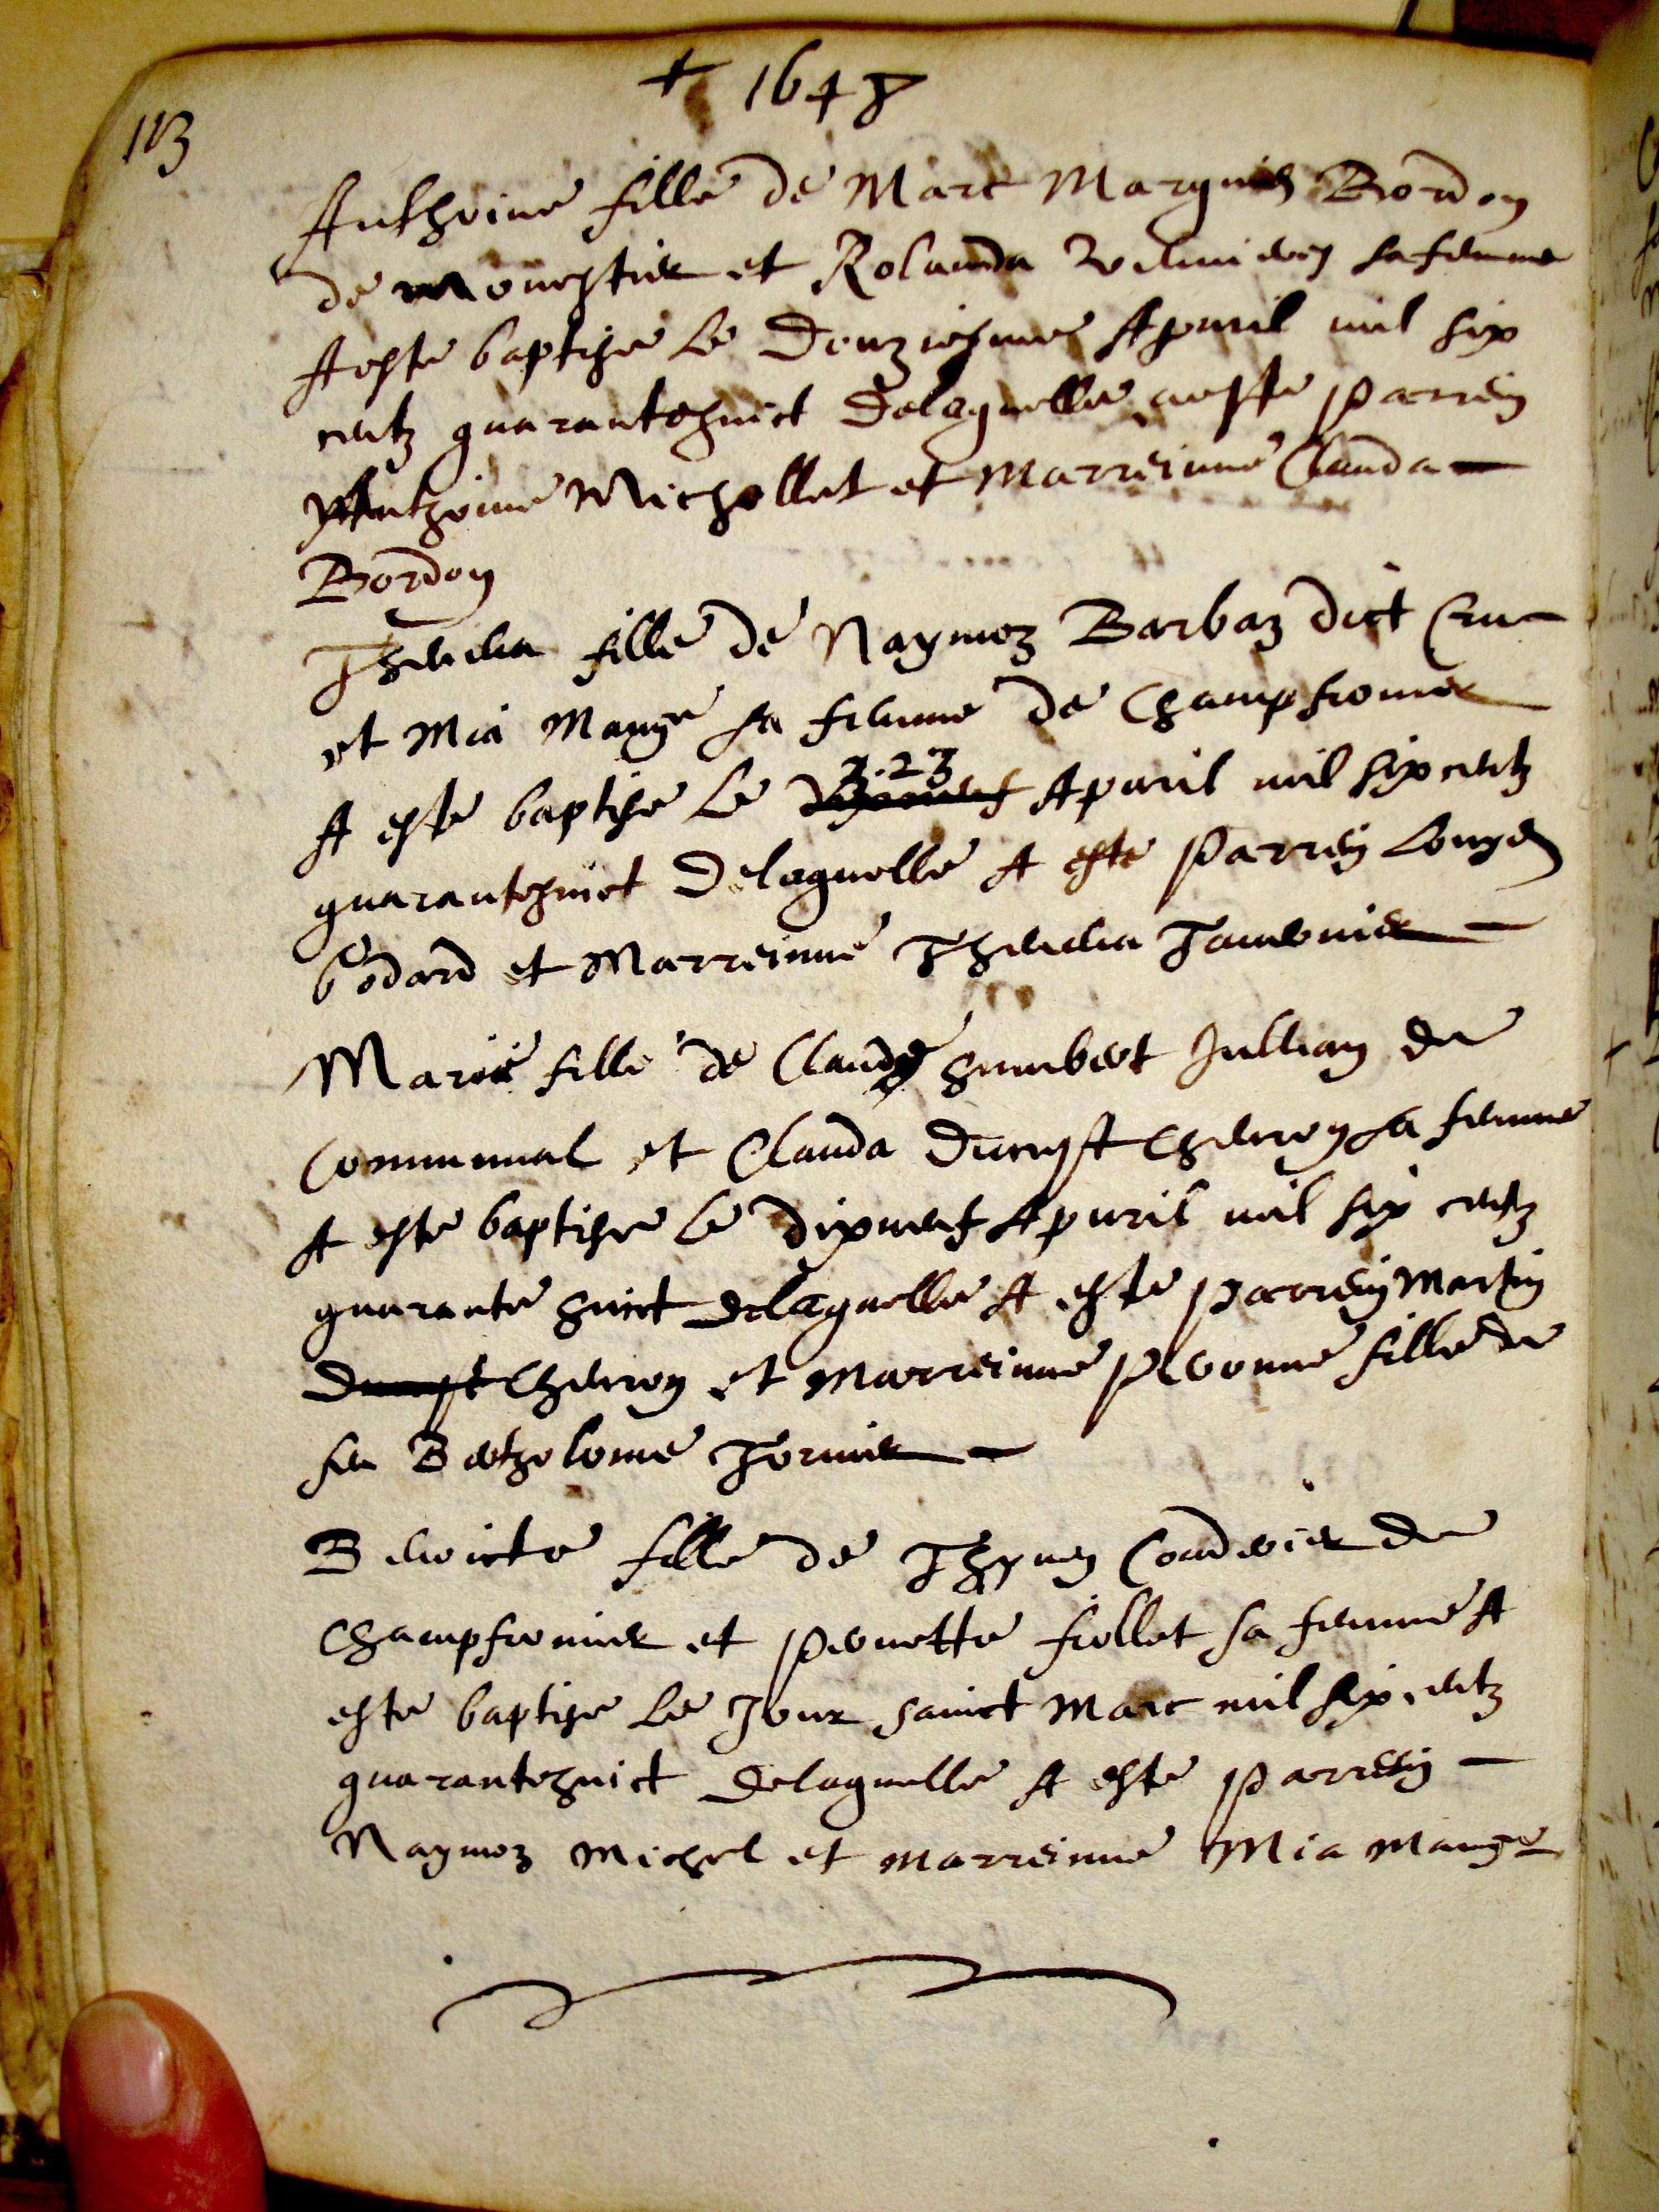 + 1648
113
Antheine fille de Marc Marquis Bordon
de monestier et Rolanda sa femme
A este baptise le Douziesme Apuril mil six
centz quarantehuict Delaquelle a este Parrein
Antheine Michollet et Marreinne Clauda
Bordon
Thevena fille de Naymoz Barbaz dict Cru
et Mia Mange sa femme de Champfromier
A este baptise le 23 Apuril mil six centz
quarantehuict Delaquelle A este Parrein Louys
bodard et Marreinne Thevena Tavernier
Marie fille de Claude humbert Jullian de
Communal et Clauda Ducrest Chevron sa femme
A este baptise le dixneuf Apuril mil six centz
quarante huict delaquelle A este Parrein Martin
Ducrest Chevron et Marreinne Pernonne fille de
feu Bertholome Tornier
Benoicte fille de Thyven Coudurier de
Champfromier et Pernette follet sa femme A
este baptise le Jour sainct Marc mil six centz
quarantehuict Delaquelle A este Parrein
Naymoz Michel et marreinne Mia Mange